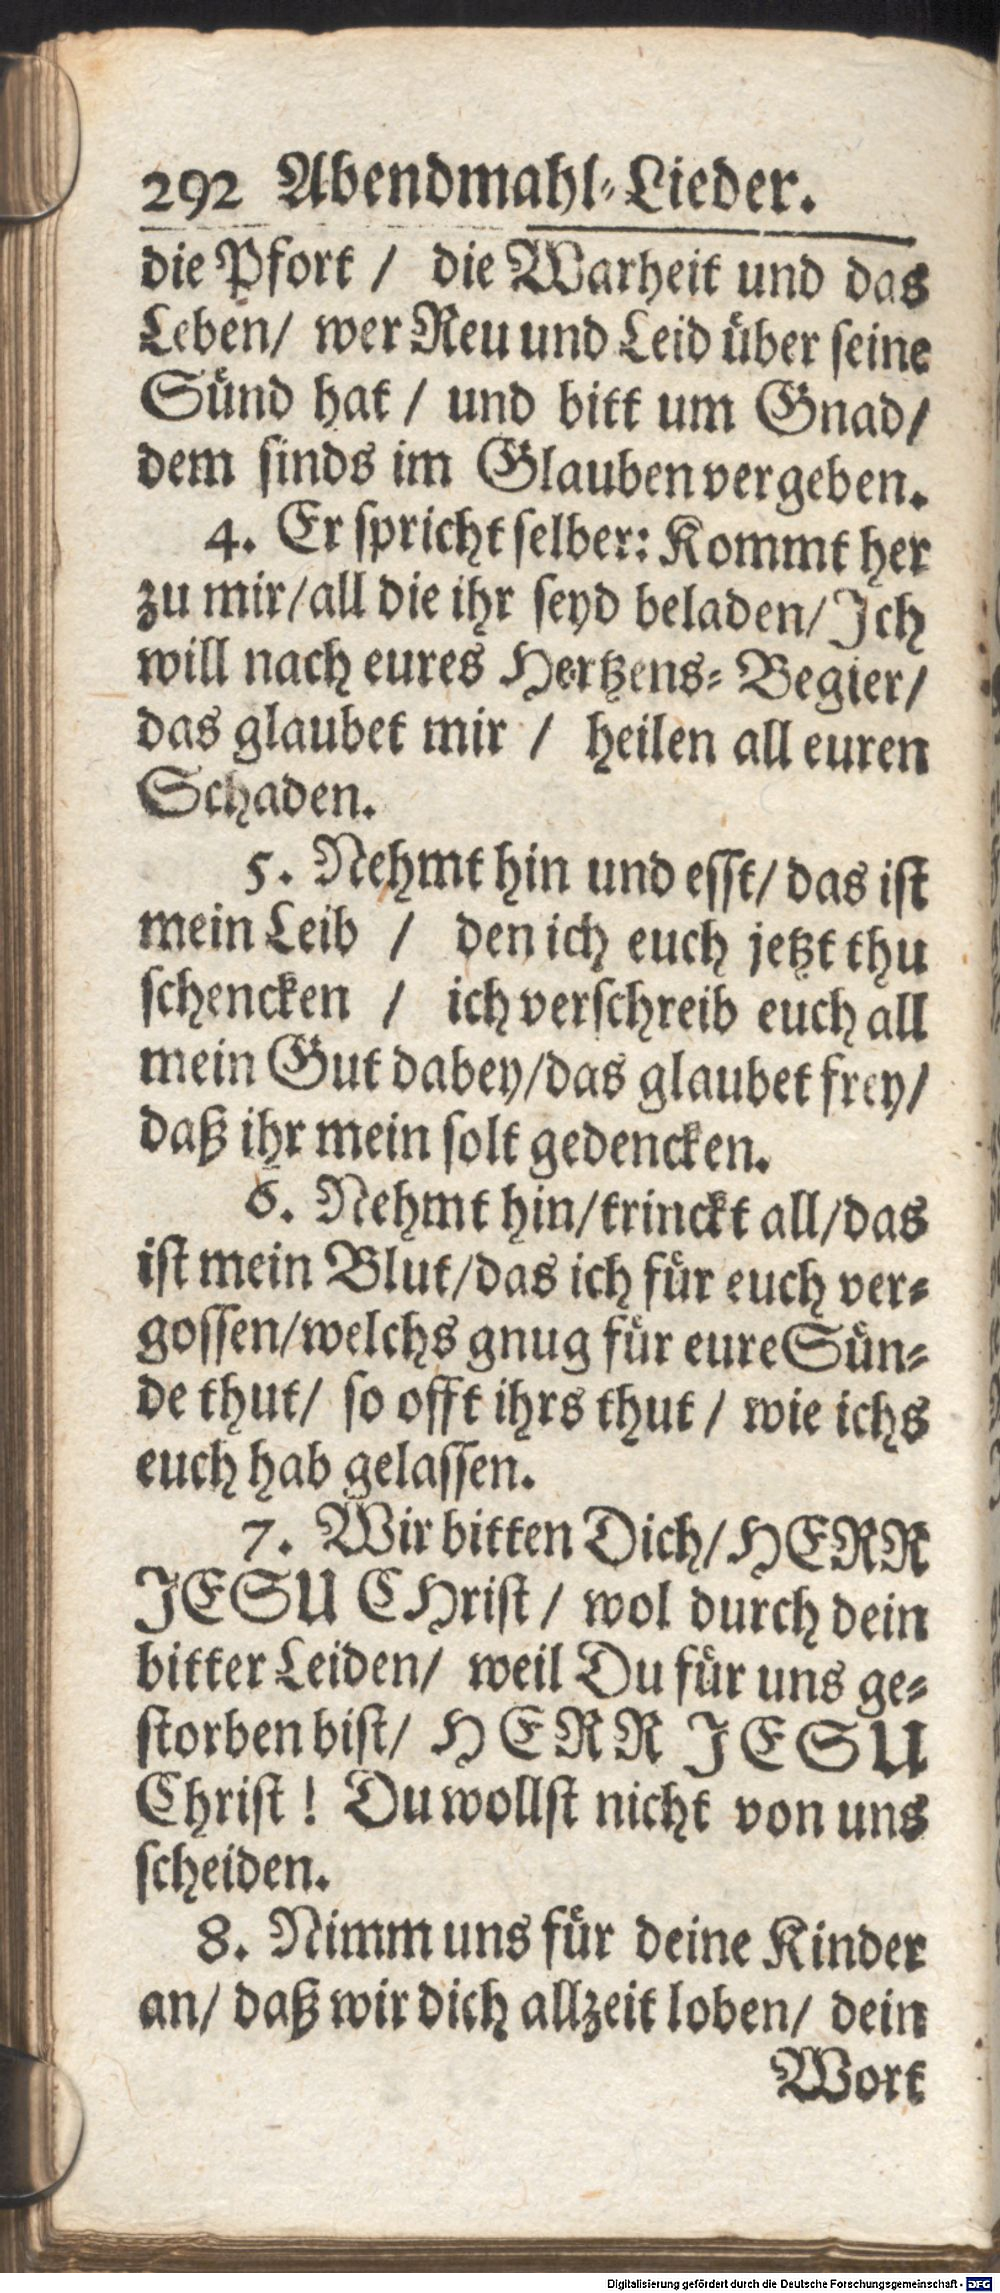 292 Abendmahl-Lieder.
die Pfort / die Warheit und das
Leben/ wer Reu und Leid über seine
Sünd hat / und bitt um Gnad/
dem sinds im Glauben vergeben.
4. Er spricht selber: Kommt her
zu mir/all die ihr seyd beladen/ Ich
will nach eures Hertzens-Begier/
das glaubet mir / heilen all euren
Schaden.
5. Nehmt hin und esst/ das ist
mein Leib / den ich euch jetzt thu
schencken / ich verschreib euch all
mein Gut dabey/das glaubet frey/
daß ihr mein solt gedencken.
6. Nehmt hin/trinckt all/das
ist mein Blut/das ich für euch ver-
gossen/welchs gnug für eure Sün-
de thut/ so offt ihrs thut / wie ichs
euch hab gelassen.
7. Wir bitten Dich/ HERR
JESU CHrist / wol durch dein
bitter Leiden/ weil Du für uns ge-
storben bist/ HERR JESU
Christ ! Du wollst nicht von uns
scheiden.
8. Nimm uns für deine Kinder
an/ daß wir dich allzeit loben/ dein
Wort
Digitalisierung gefördert durch die Deutsche Forschungsgemeinschaft - DFG